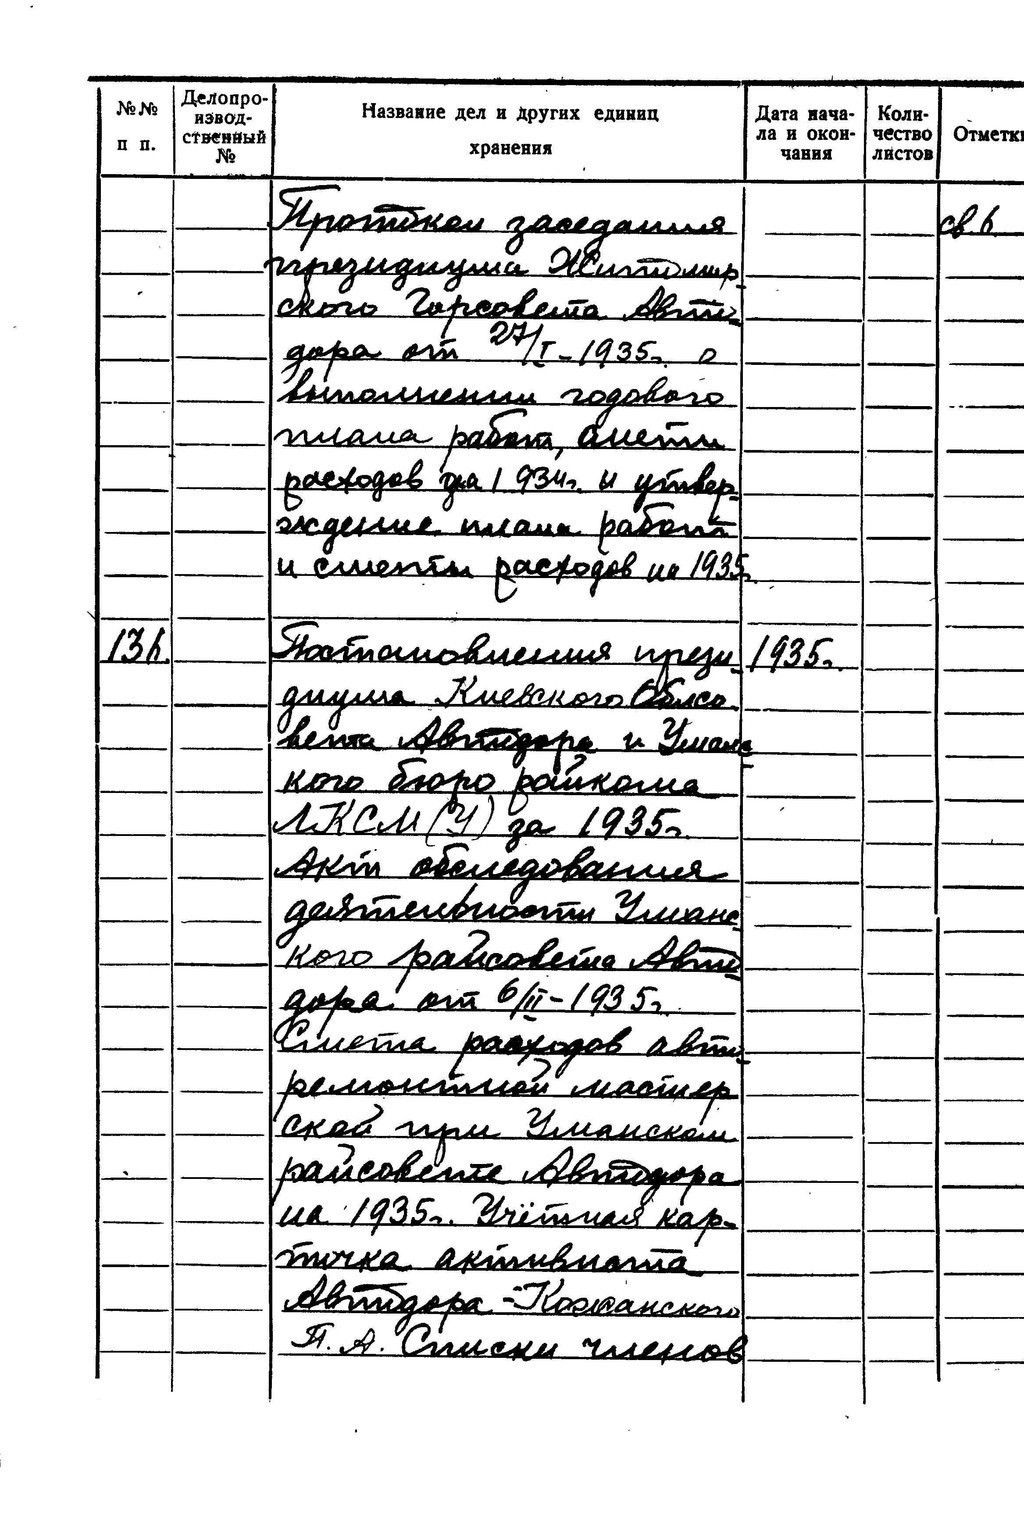 №№ п п.
Делопроизвод-ственный №
Название дел и других единиц хранения
Дата нача-ла и окон-чания
Коли-чество листов
Отметки
Протокол заседания
св 6.
президиума Житомир-
ского Горсовета Авто-
дора от 27/I-1935г. о
выполнении годового
плана работ, сметы
расходов за 1934г. и утвер-
ждение плана работ
и сметы расходов на 1935г.
136.
Постановления прези-
1935г.
диума Киевского Облсо-
вета Автодора и Уманс-
кого бюро райкома
ЛКСМ(У) за 1935г.
Акт обследования
деятельности Уманс-
кого райсовета Авто-
дора от 6/II-1935г.
Смета расходов авто-
ремонтной мастер-
ской при Уманском
райсовете Автодора
на 1935г. Учётная кар-
точка активиста
Автодора - Кожанского
П. А. Списки членов